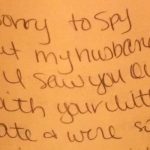 Sorry to Spy
ut my husban
I saw you Ou
ith your litt
ate & were s